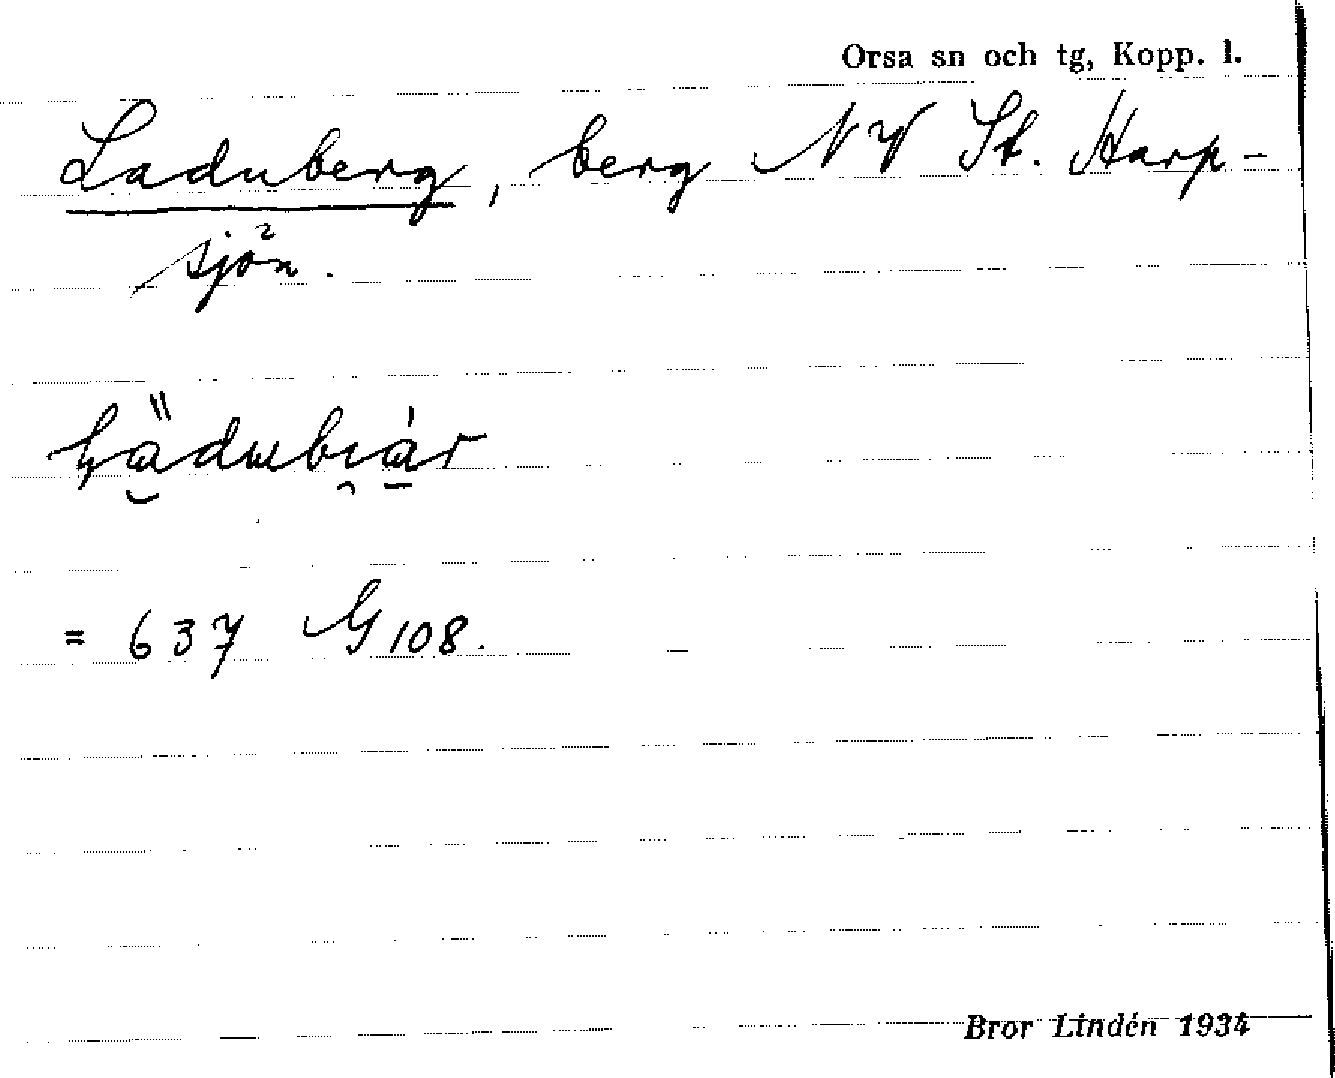 Orsa sn och tg, Kopp. l.
Laduberg, berg NV St. Harp-
sjön.
= 637 G 108.
Bror Lindén 1934